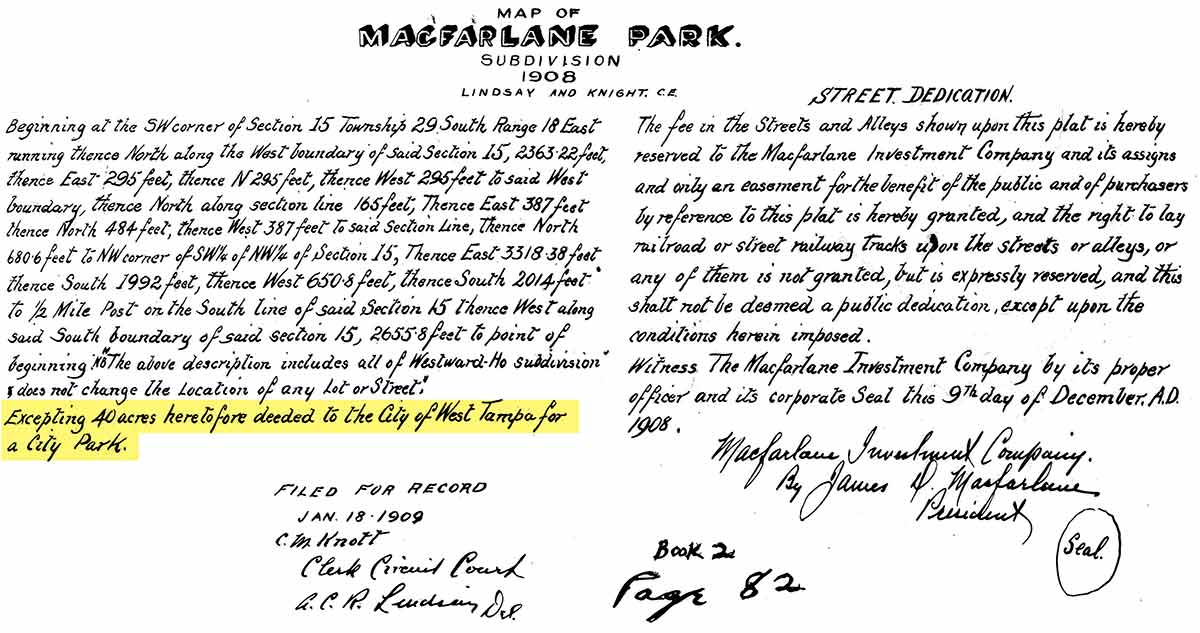 MAP OF
MACFARLANE PARK.
SUBDIVISION
1908
LINDSAY AND KNIGHT. C.E.
Beginning at the SW corner of Section 15 Township 29 South Range 18 East
running thence North along the West boundary of said Section 15, 2363·22 feet,
thence East 295 feet, thence N 295 feet, thence West 295 feet to said West
boundary, thence North along section line 165 feet, Thence East 387 feet
thence North 484 feet, thence West 387 feet to said Section Line, thence North
680·6 feet to NW corner of SW¼ of NW¼ of Section 15, Thence East 3318·38 feet
thence South 1992 feet, thence West 650·8 feet, thence South 2014 feet
to ½ Mile Post on the South line of said Section 15 thence West along
said South boundary of said section 15, 2655·8 feet to point of
beginning "The above description includes all of Westward-Ho subdivision
& does not change the Location of any Lot or Street."
Excepting 40 acres heretofore deeded to the City of West Tampa for
a City Park.
FILED FOR RECORD
JAN. 18·1909
C. M. Knott
Clerk Circuit Court
A. C. R. Lindsay Del.
STREET DEDICATION.
The fee in the Streets and Alleys shown upon this plat is hereby
reserved to the Macfarlane Investment Company and its assigns
and only an easement for the benefit of the public and of purchasers
by reference to this plat is hereby granted, and the right to lay
railroad or street railway tracks upon the streets or alleys, or
any of them is not granted, but is expressly reserved, and this
shall not be deemed a public dedication, except upon the
conditions herein imposed.
Witness The Macfarlane Investment Company by its proper
officer and its corporate Seal this 9th day of December. A.D.
1908.
Macfarlane Investment Company.
By James D. Macfarlane
President
Seal.
Book 2
Page 82